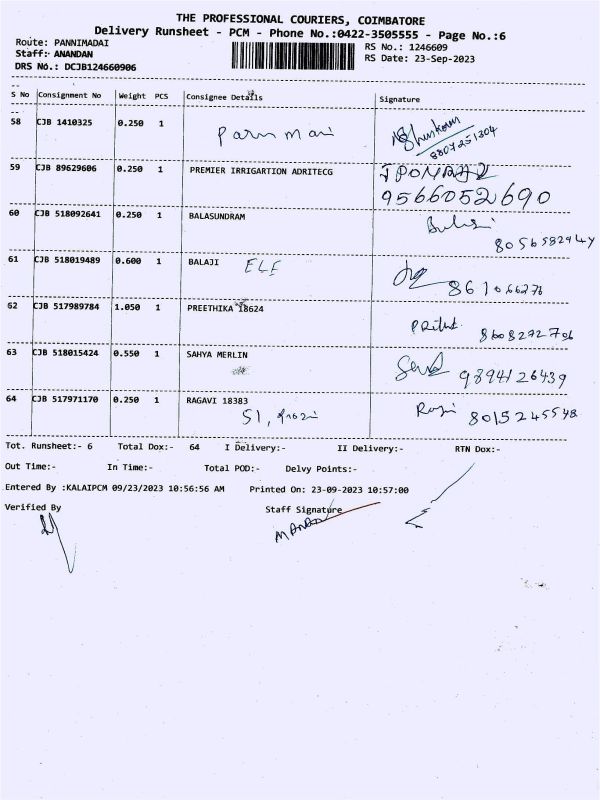 THE PROFESSIONAL COURIERS, COIMBATORE
Delivery Runsheet - PCM - Phone No.:0422-3505555 - Page No.:6
Route: PANNIMADAI
Staff: ANANDAN
DRS No.: DCJB124660906
RS No.: 1246609
RS Date: 23-Sep-2023
S No Consignment No Weight PCS Consignee Details Signature
58 CJB 1410325 0.250 1
8807251304
59 CJB 89629606 0.250 1 PREMIER IRRIGARTION ADRITECG
9566052690
60 CJB 518092641 0.250 1 BALASUNDRAM
61 CJB 518019489 0.600 1 BALAJI ELE
62 CJB 517989784 1.050 1 PREETHIKA 18624
63 CJB 518015424 0.550 1 SAHYA MERLIN
9894126439
64 CJB 517971170 0.250 1 RAGAVI 18383
8015245548
Tot. Runsheet:- 6 Total Dox:- 64 I Delivery:- II Delivery:- RTN Dox:-
Out Time:- In Time:- Total POD:- Delvy Points:-
Entered By :KALAIPCM 09/23/2023 10:56:56 AM Printed On: 23-09-2023 10:57:00
Verified By Staff Signature